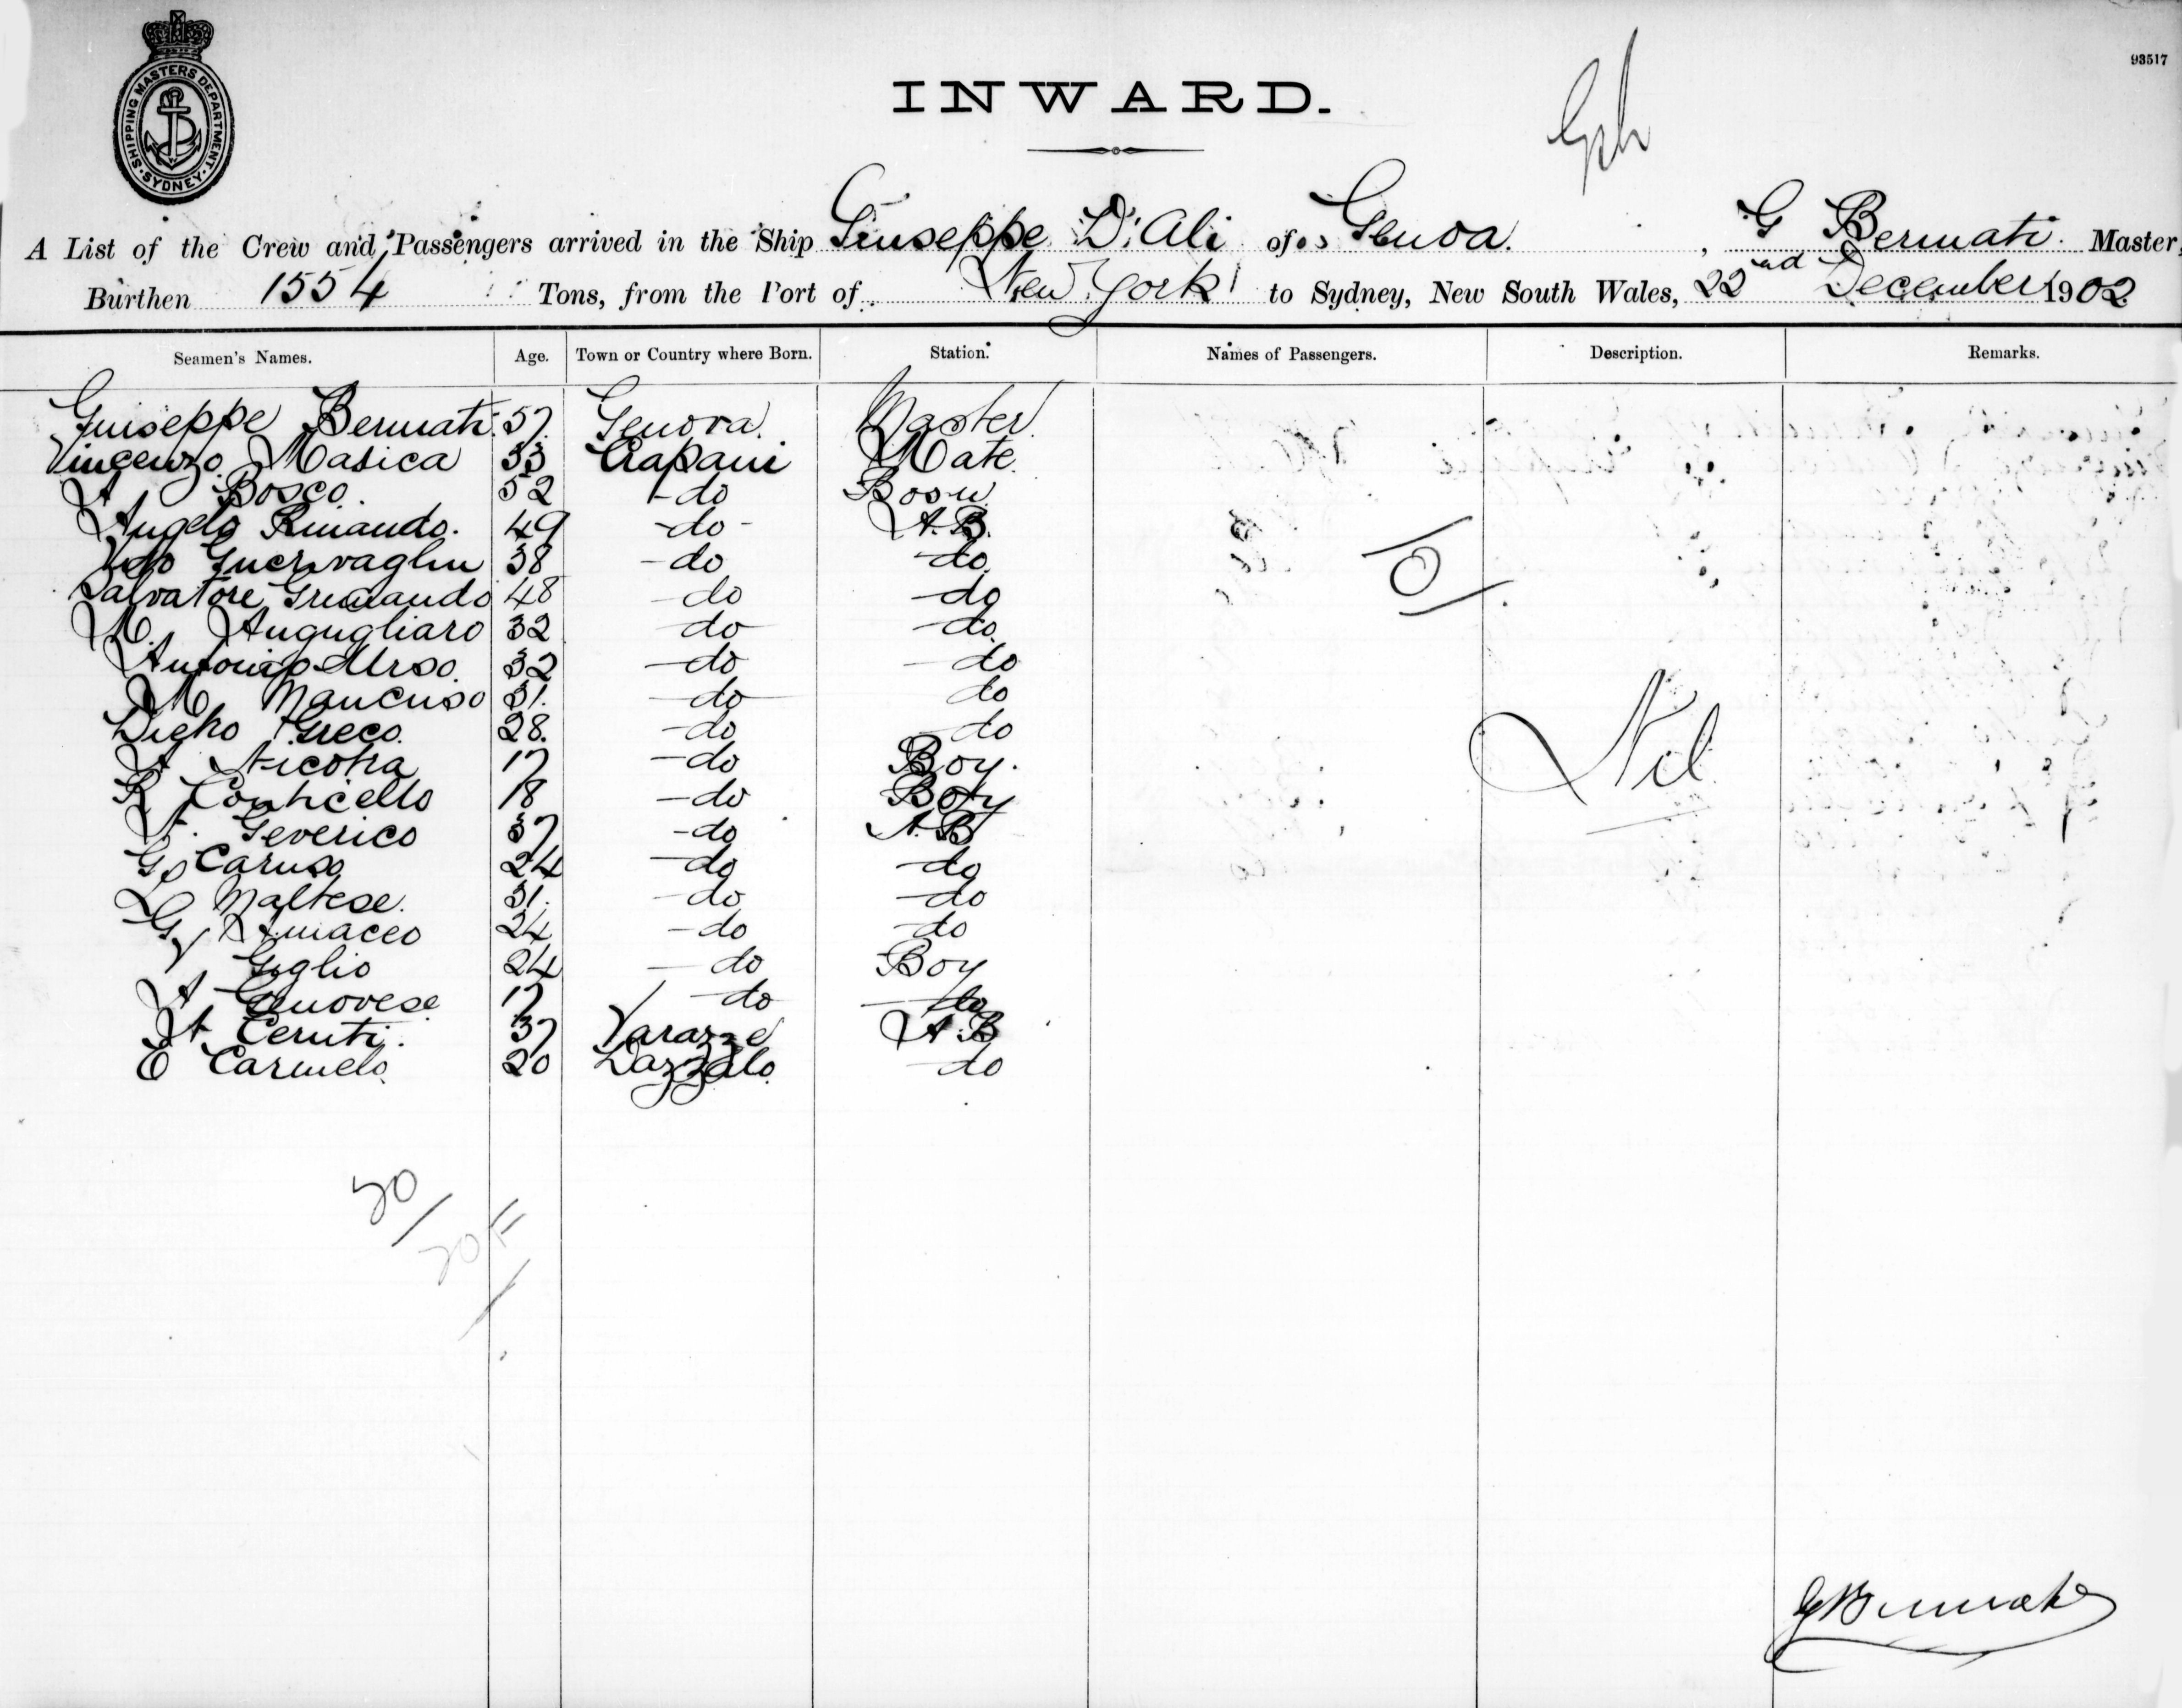 93517
SHIPPING MASTERS DEPARTMENT
SYDNEY
INWARD.
A List of the Crew and Passengers arrived in the Ship Giuseppe D'Ali of Genoa. , G Bermati. Master,
Burthen 1554 Tons, from the Port of New York to Sydney, New South Wales, 22nd December 1902
Seamen's Names. Age. Town or Country where Born. Station. Names of Passengers. Description. Remarks.
Guiseppe Bermati 57 Genova Master
Vincenzo Masica 33 Trapani Mate
A Bosco. 52 -do Bosn
Angelo Rinaudo. 49 -do- A.B.
38 -do -do
Salvatore 48 -do -do
M. Augugliaro 32 -do -do
Antonio Urso. 32 -do do
M Mancuso 31. -do do
Greco. 28. -do do
A Nicotra 17 -do Boy.
R 18 -do Boy
Severico 37 -do A.B
G Caruso 24 -do -do
L Maltese. 31. -do -do
G 24 -do do
Giglio 24 -do Boy
A Genovese 17 -do do
A Ceruti. 37 Varazze A.B
E Carmelo. 20 Dazzalo do
Nil
20
G Bermati